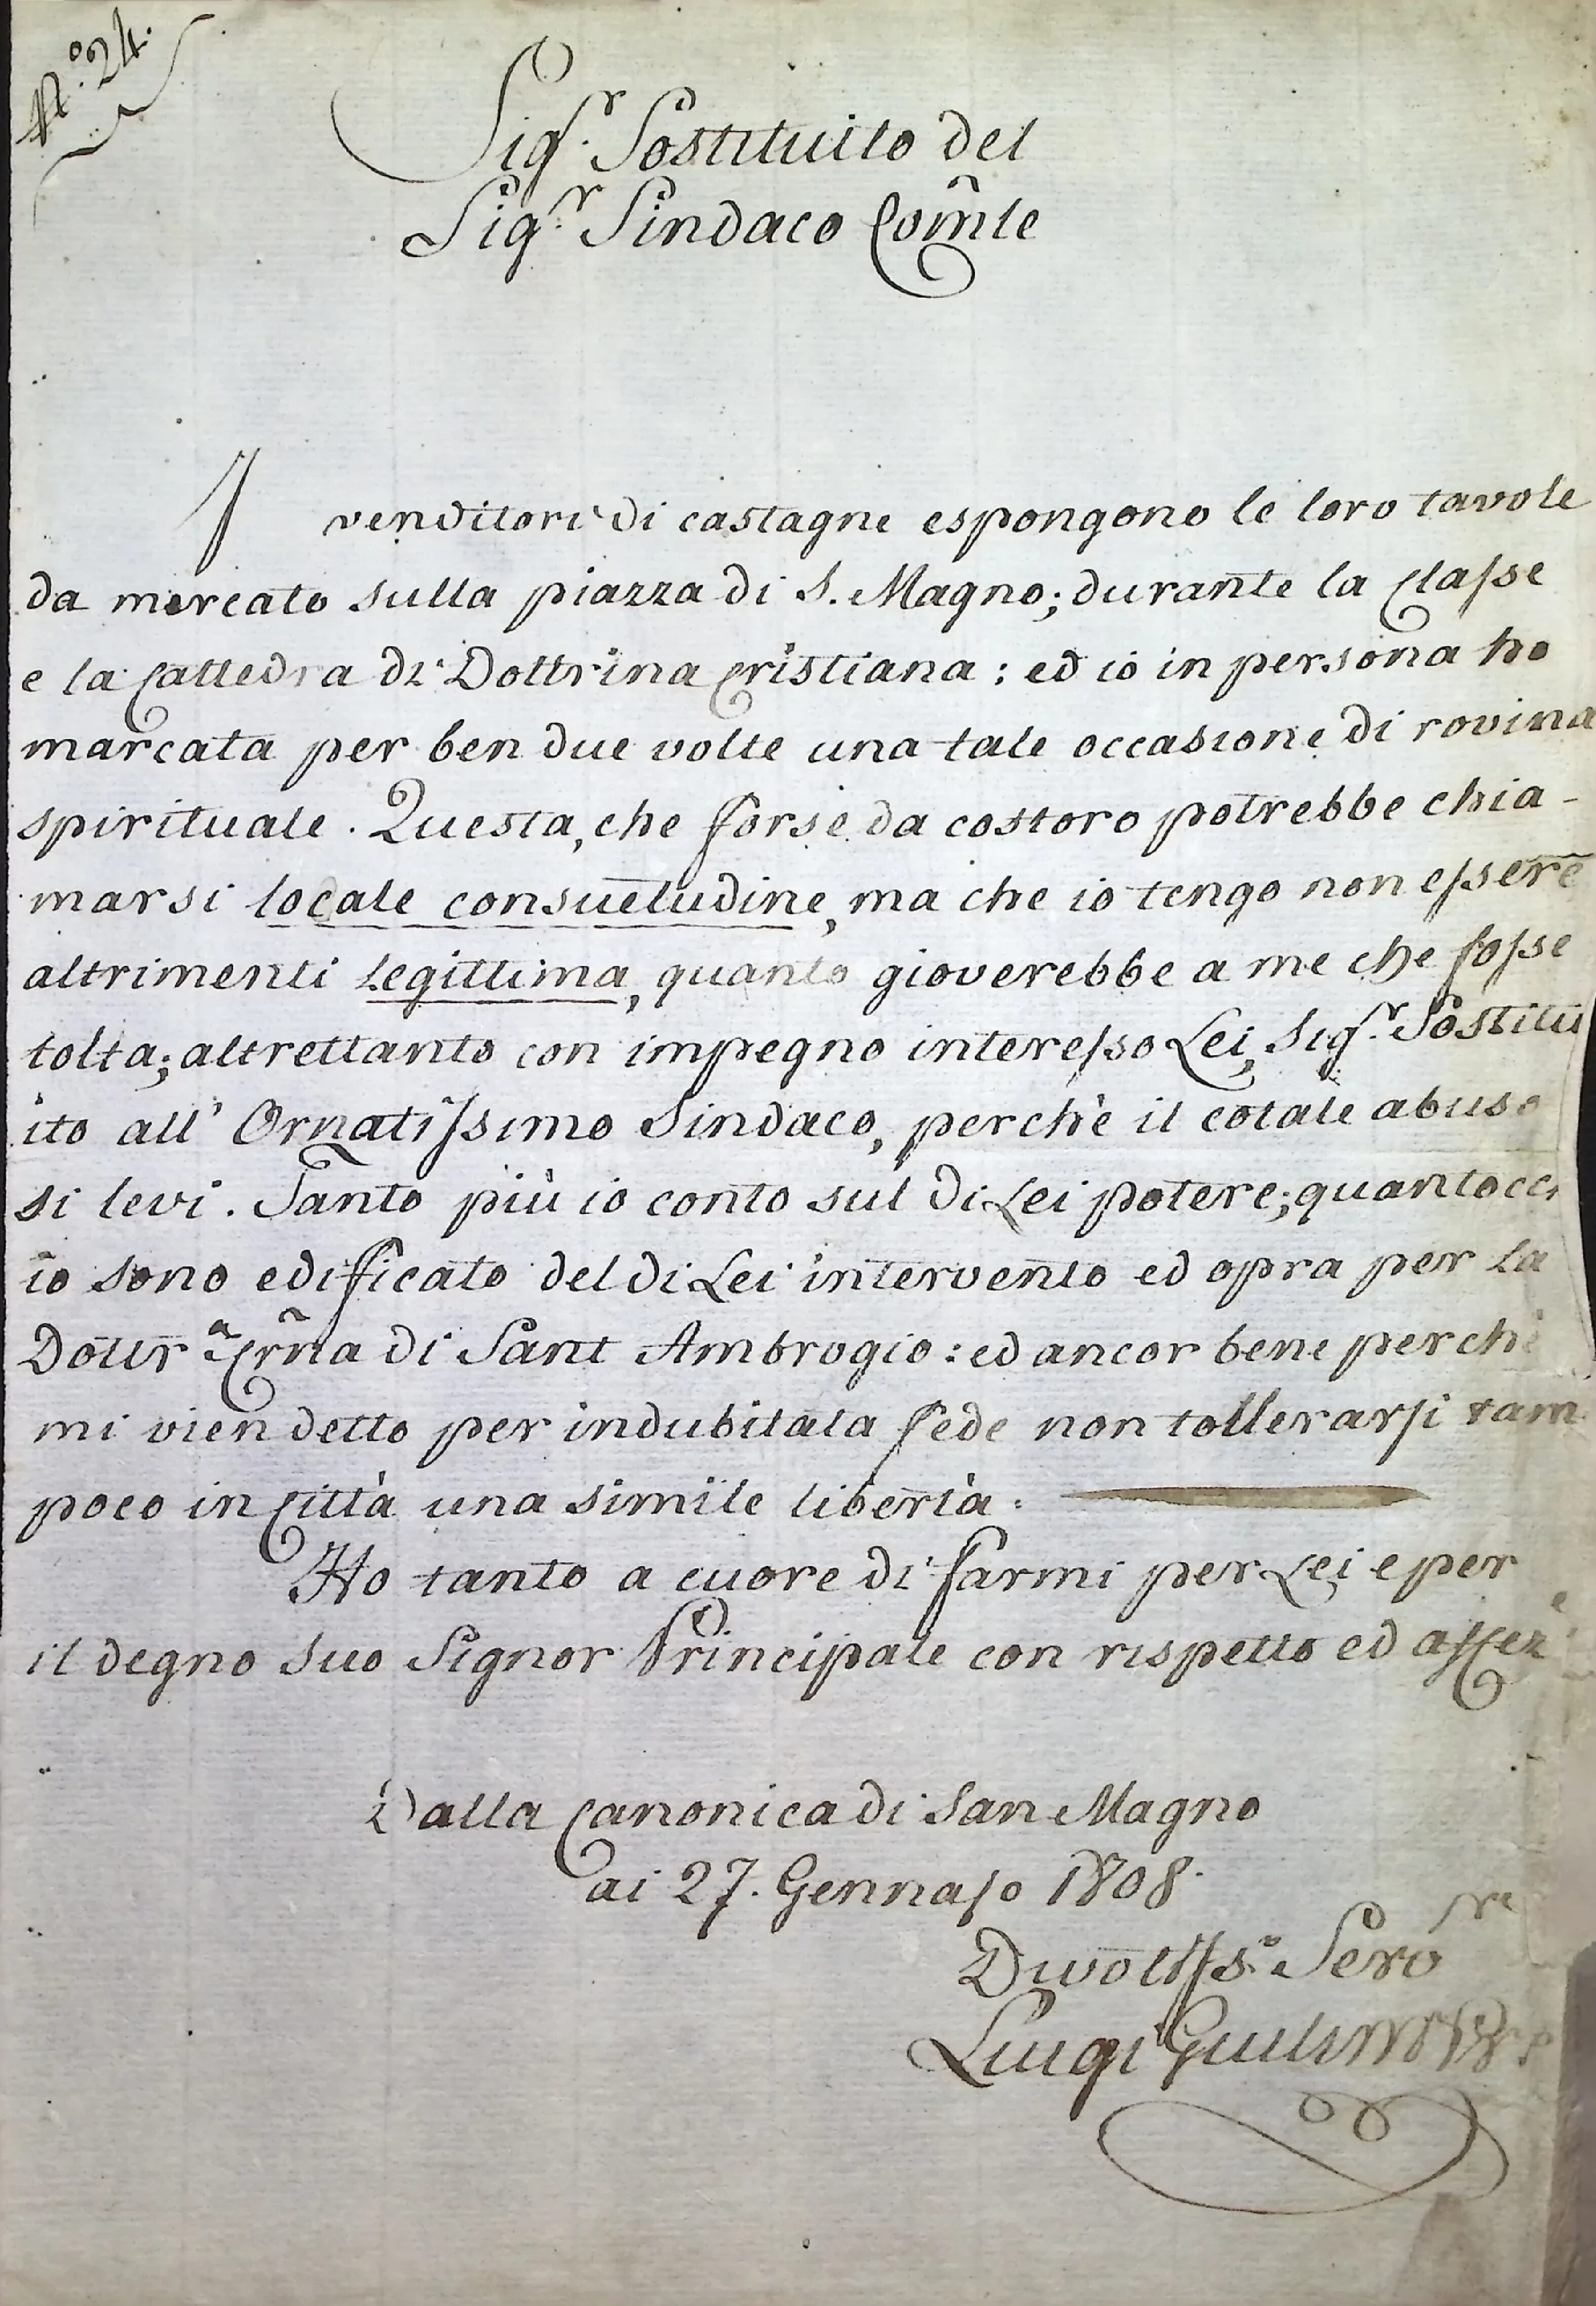 N.° 24.
Sig.r Sostituito del
Sig.r Sindaco Com̃le
I venditori di castagne espongono le loro tavole
da mercato sulla piazza di S. Magno; durante la Classe
e la Cattedra di Dottrina Cristiana: ed io in persona ho
marcata per ben due volte una tale occasione di rovina
spirituale. Questa, che forse da costoro potrebbe chia-
marsi locale consuetudine, ma che io tengo non essere
altrimenti legittima, quanto gioverebbe a me che fosse
tolta; altrettanto con impegno interesso Lei, Sig.r Sostitu
ito all' Ornatissimo Sindaco, perchè il cotale abuso
si levi. Tanto più io conto sul di Lei potere;
io sono edificato del di Lei intervento ed opra per la
Dottr.a Crña di Sant Ambrogio: ed ancor bene perchè
mi vien detto per indubitata fede non tollerarsi tam
poco in Città una simile libertà.
Ho tanto a cuore di farmi per Lei e per
il degno suo Signor Principale con rispetto ed affez
Dalla Canonica di San Magno
ai 27. Gennajo 1808.
Divotiss.o Servre
Luigi